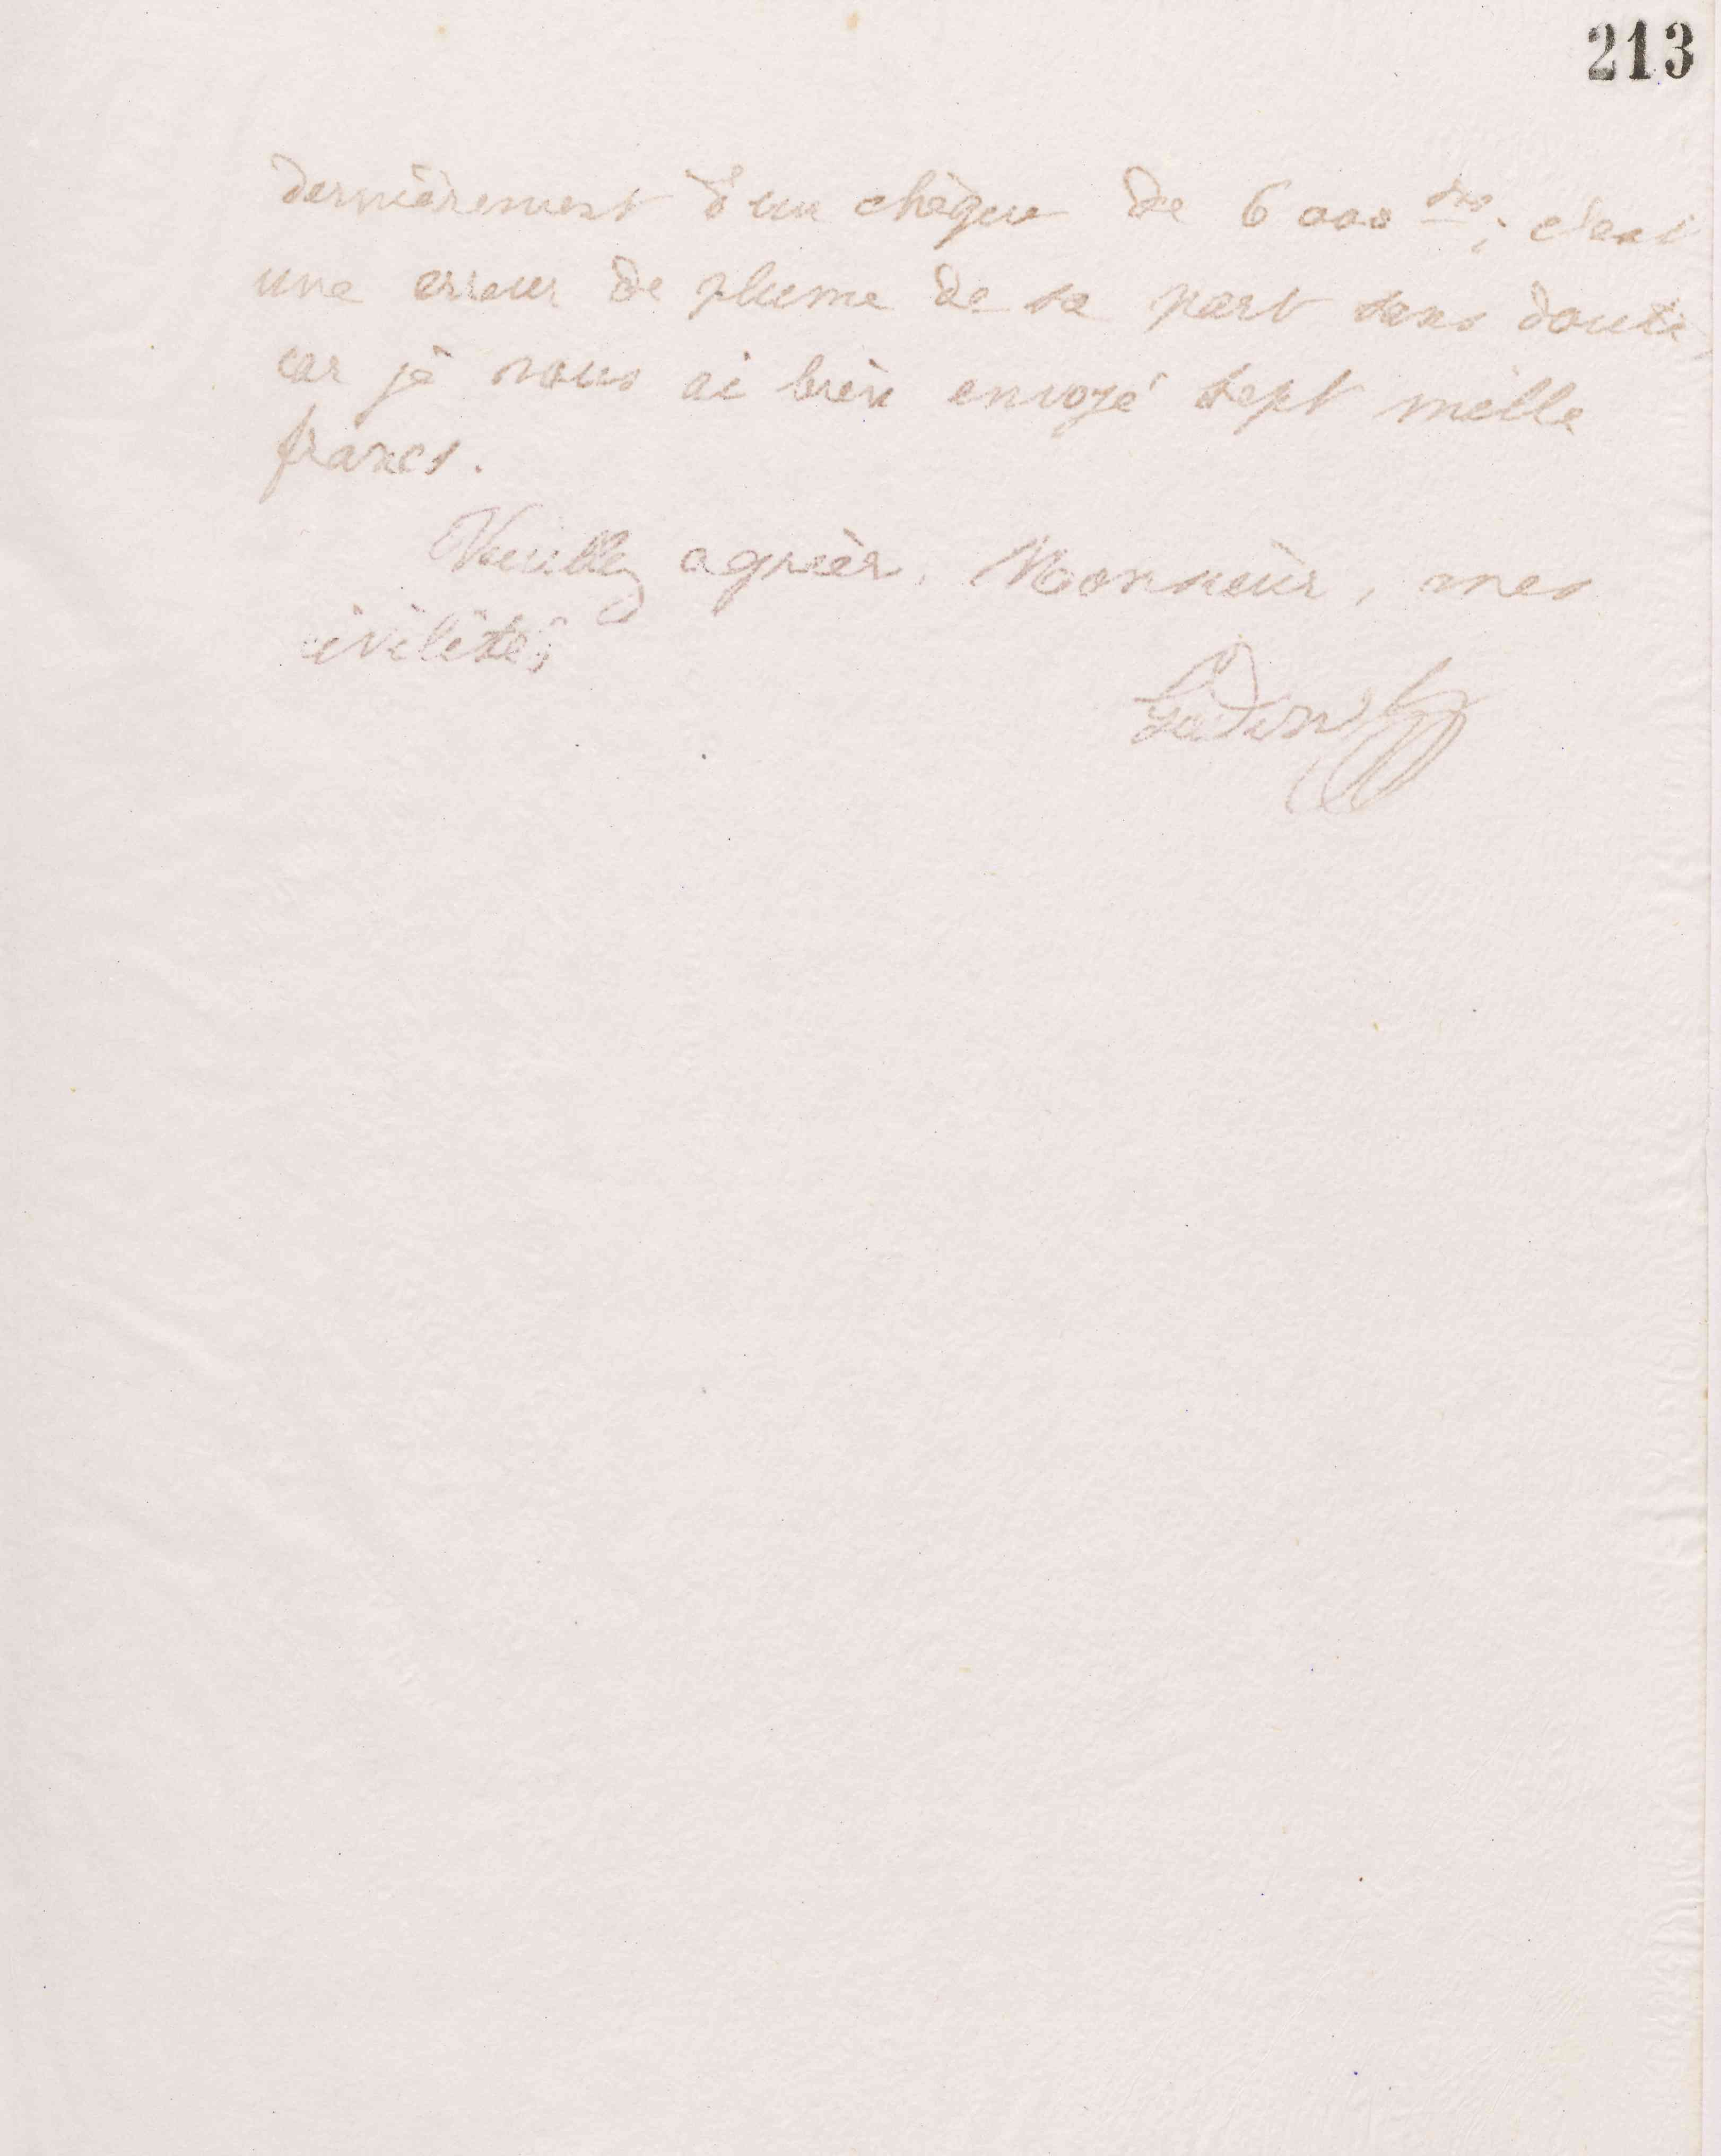 213
dernièrement d'un chèque de 6000 frs; c'est
une erreur de plume de sa part sans doute,
car je vous ai bien envoyé sept mille
francs.
Veuillez agréer, Monsieur, mes
civilités
Godin